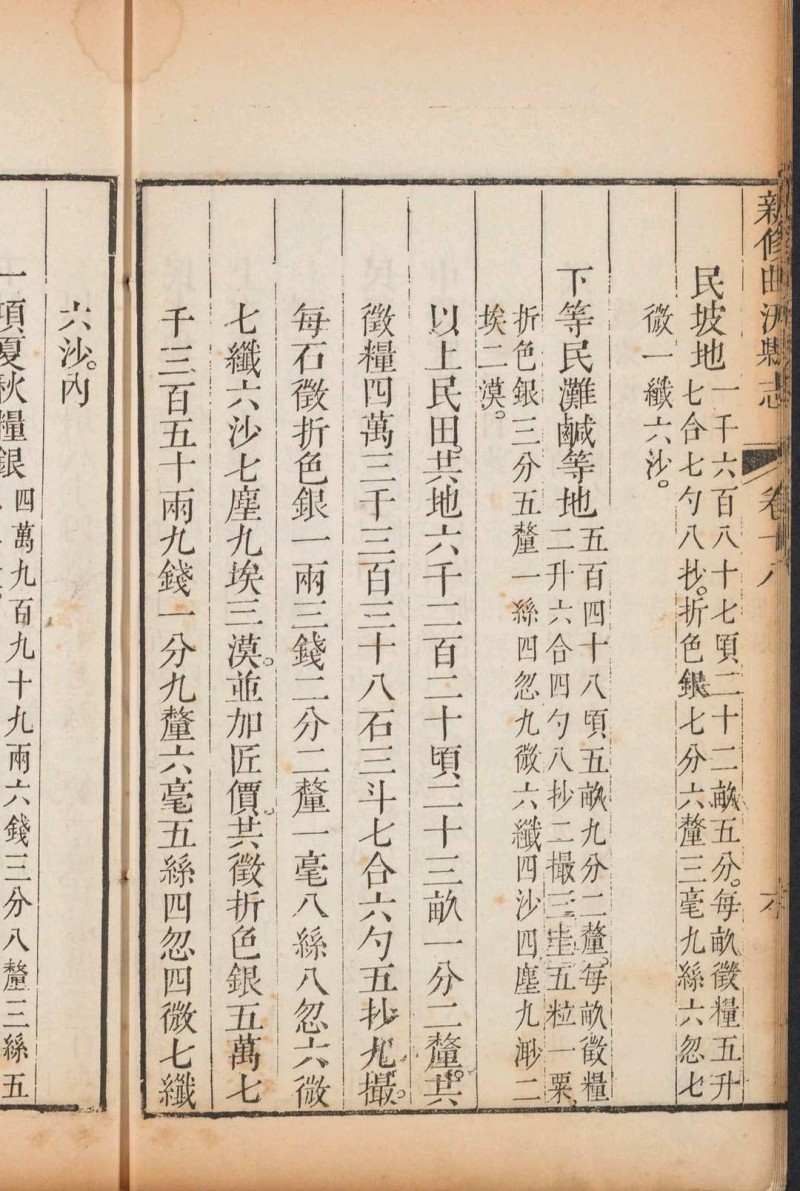 新修曲沃縣志
卷十八
民坡地一千六百八十七頃二十二畝五分。每畝徵糧五升
七合七勺八抄。折色銀七分六釐三毫九絲六忽七
微一纖六沙。
下等民灘鹹等地五百四十八頃五畝九分二釐。每畝徵糧
二升六合四勺八抄二撮三圭五粒一粟
折色銀三分五釐一絲四忽九微六纖四沙四塵九渺二
埃二漠。
以上民田。共地六千二百二十頃二十三畝一分二釐。共
徵糧四萬三千三百三十八石三斗七合六勺五抄九撮。
每石徵折色銀一兩三錢二分二釐一毫八絲八忽六微
七纖六沙七塵九埃三漠。並加匠價。共徵折色銀五萬七
千三百五十兩九錢一分九釐六毫五絲四忽四微七纖
六沙。內
一項夏秋糧銀四萬九百九十九兩六錢三分八釐三絲五